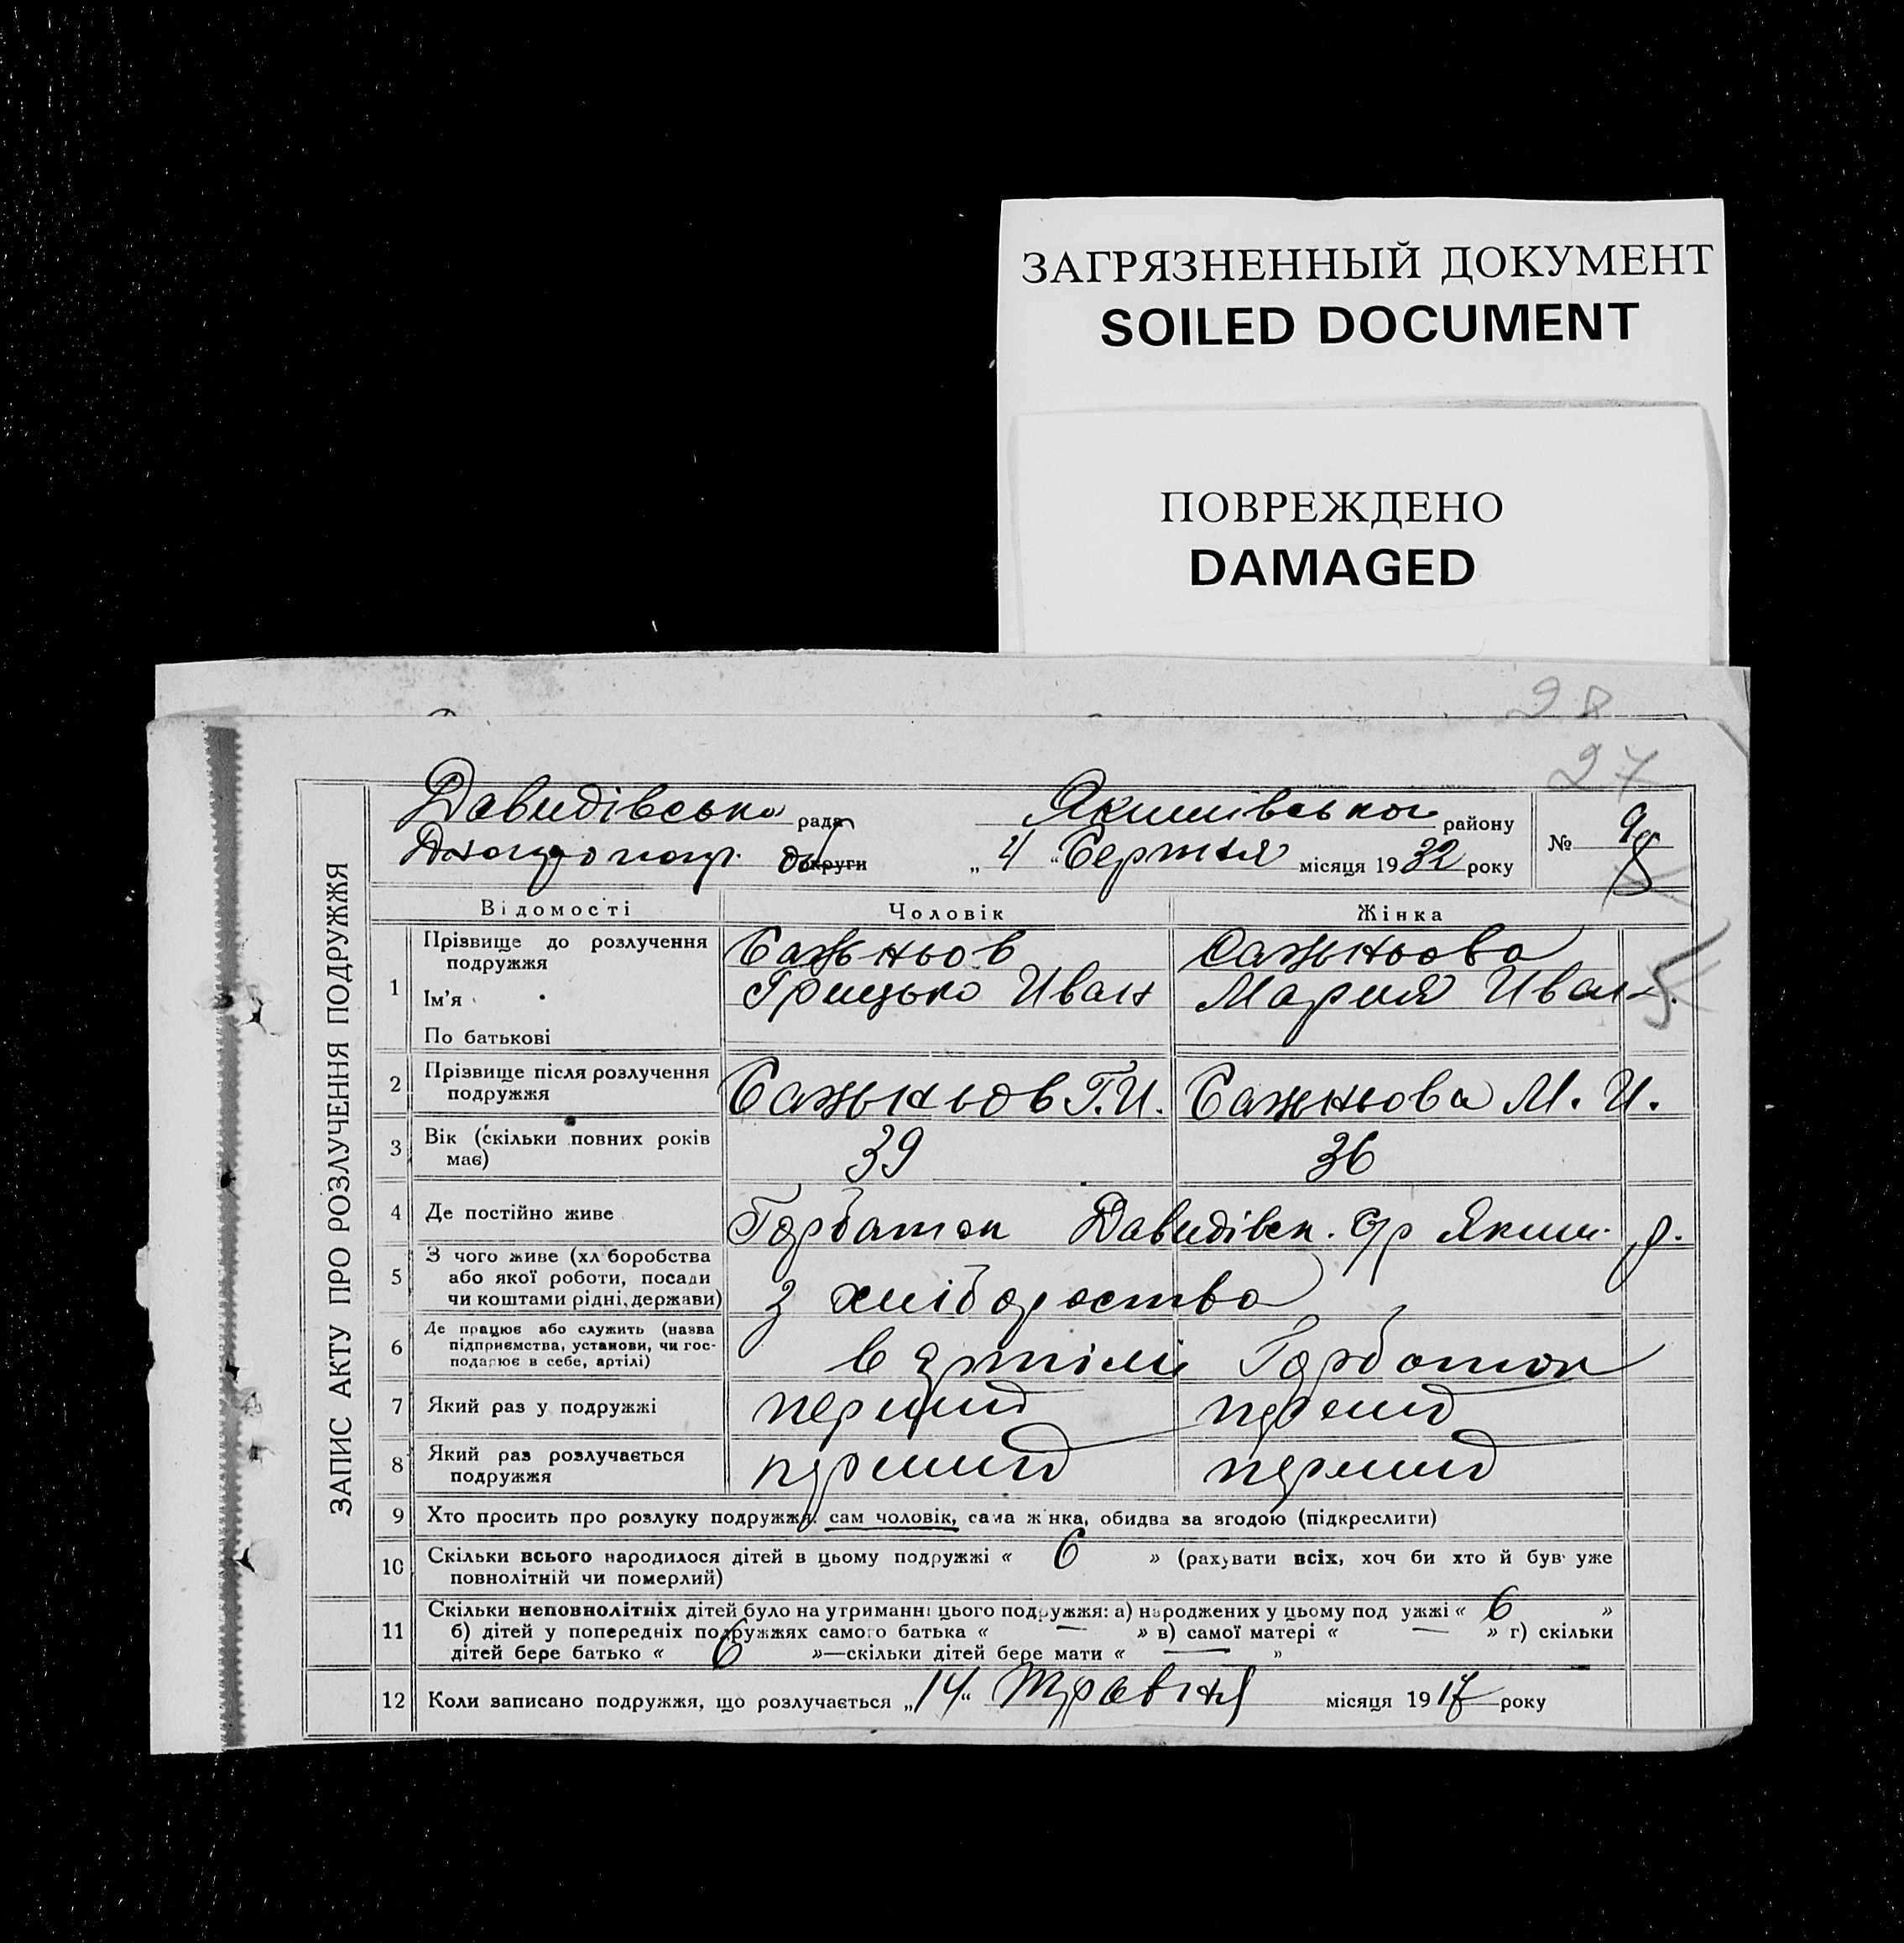 ЗАГРЯЗНЕННЫЙ ДОКУМЕНТ
SOILED DOCUMENT
ПОВРЕЖДЕНО
DAMAGED
28
27
ЗАПИС АКТУ ПРО РОЗЛУЧЕННЯ ПОДРУЖЖЯ
Давидівська рада Якимівського району
Дніпропетр. об округи „4“ Серпня місяця 1932 року № 9 8
Відомості Чоловік Жінка
1 Прізвище до розлучення подружжя Сажньов Сажньова
5
Ім'я Грицько Иван Мария Иван.
По батькові
2 Прізвище після розлучення
подружжя Сажньов Г.И. Сажньова М. И.
3 Вік (скільки повних років
має) 39 36
4 Де постійно живе Горбаток Давидівск. с/р Яким. р.
5 З чого живе (хліборобства
або якої роботи, посади
чи коштами рідні, держави) з хліборобства
6 Де працює або служить (назва
підприємства, установи, чи гос-
подарює в себе, артілі) в артілі Горбаток
7 Який раз у подружжі перший перший
8 Який раз розлучається
подружжя перший перший
9 Хто просить про розлуку подружжя: сам чоловік, сама жінка, обидва за згодою (підкреслити)
10 Скільки всього народилося дітей в цьому подружжі « 6 » (рахувати всіх, хоч би хто й був уже
повнолітній чи померлий)
11 Скільки неповнолітніх дітей було на утриманні цього подружжя: а) народжених у цьому подружжі « 6 »
б) дітей у попередніх подружжях самого батька « — » в) самої матері « — » г) скільки
дітей бере батько « 6 »—скільки дітей бере мати « — »
12 Коли записано подружжя, що розлучається „14“ Травня місяця 1917 року